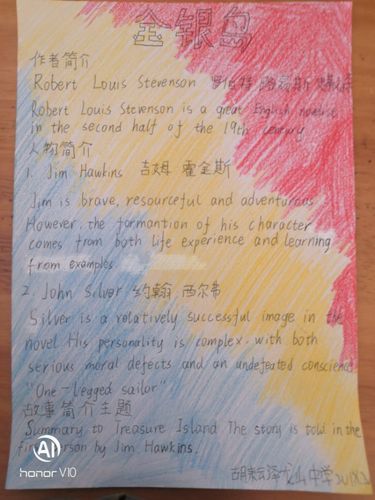 金银岛
作者简介
Robert Louis Stevenson 罗伯特 路易斯
Robert Louis Stevenson is a great English novelist
in the second half of the 19th century
人物简介
1. Jim Hawkins 吉姆 霍金斯
Jim is brave, resourceful and adventurous
However, the formantion of his character
comes from both life experience and learning
from examples
2. John Silver 约翰 西尔弗
Silver is a relatively successful image in the
novel His personality is complex, with both
serious moral defects and an undefeated conscience
"One-legged sailor"
故事简介主题
Summary to Treasure Island The story is told in the
first person by Jim Hawkins.
中学
AI
honor V10